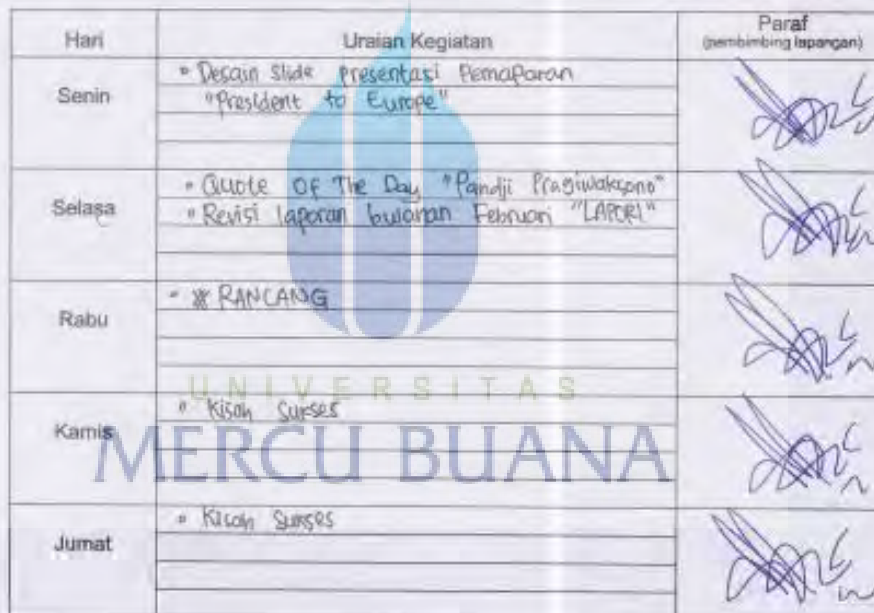 Hari Uraian Kegiatan Paraf
(pembimbing lapangan)
Senin
• Desain slide presentasi Pemaparan
"President to Europe"
Selasa
• Quote Of The Day "Pandji Pragiwaksono"
• Revisi laporan bulanan Februari "LAPOR!"
Rabu
• RANCANG
UNIVERSITAS
Kamis
• Kisah Sukses
MERCU BUANA
Jumat
• Kisah Sukses